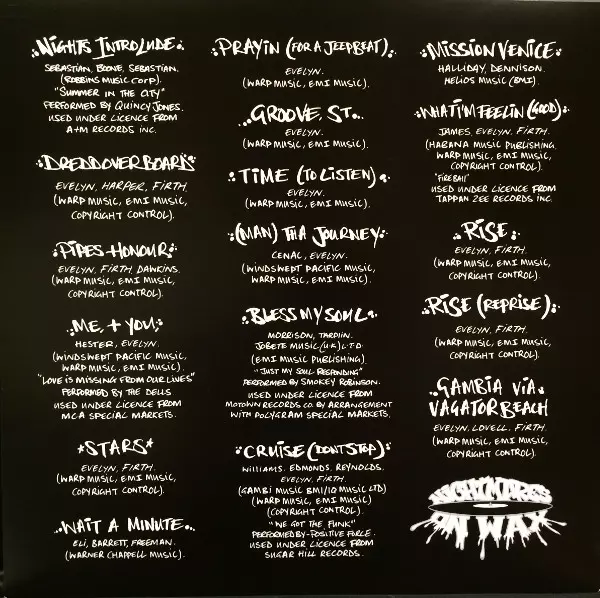 Nights Introlude
Sebastian, Boone, Sebastian.
(Robbins Music Corp).
"Summer in the City"
Performed by Quincy Jones.
Used under licence from
A+M Records Inc.
Dreddoverboard
Evelyn, Harper, Firth.
(Warp Music, EMI Music,
Copyright Control).
Pipes Honour
Evelyn, Firth, Dawkins.
(Warp Music, EMI Music,
Copyright Control).
Me + You
Hester, Evelyn.
(Windswept Pacific Music,
Warp Music, EMI Music).
"Love is missing from our lives"
Performed by The Dells
Used under licence from
MCA Special Markets.
*Stars*
Evelyn, Firth.
(Warp Music, EMI Music,
Copyright Control).
Wait a Minute
Eli, Barrett, Freeman.
(Warner Chappell Music).
Prayin (for a Jeepbeat)
Evelyn.
(Warp Music, EMI Music).
Groove St.
Evelyn.
(Warp Music, EMI Music).
Time (to Listen)
Evelyn.
(Warp Music, EMI Music).
(Man) Tha Journey
Cenac, Evelyn.
(Windswept Pacific Music,
Warp Music, EMI Music).
Bless My Soul
Morrison, Tarplin.
Jobete Music (UK) LTD
(EMI Music Publishing).
"Just my soul responding"
Performed by Smokey Robinson.
Used under licence from
Motown Records Co by arrangement
with Polygram Special Markets.
Cruise (Dont Stop)
Williams. Edmonds. Reynolds.
Evelyn. Firth.
(Gambi Music BMI/IQ Music LTD)
(Warp Music, EMI Music)
(Copyright Control).
"We got the funk"
Performed by-Positive Force.
Used under licence from
Sugar Hill Records.
Mission Venice
Halliday, Dennison.
Helios Music (EMI).
What I'm Feelin (Good)
James, Evelyn. Firth.
(Habana Music Publishing.
Warp Music, EMI Music,
Copyright Control).
"Fireball"
Used under licence from
Tappan Zee Records Inc.
Rise
Evelyn, Firth.
(Warp Music, EMI Music,
Copyright Control).
Rise (Reprise)
Evelyn, Firth.
(Warp Music, EMI Music,
Copyright Control).
Gambia Via
Vagator Beach
Evelyn. Lovell. Firth.
(Warp Music, EMI Music,
Copyright Control).
Nightmares
on Wax